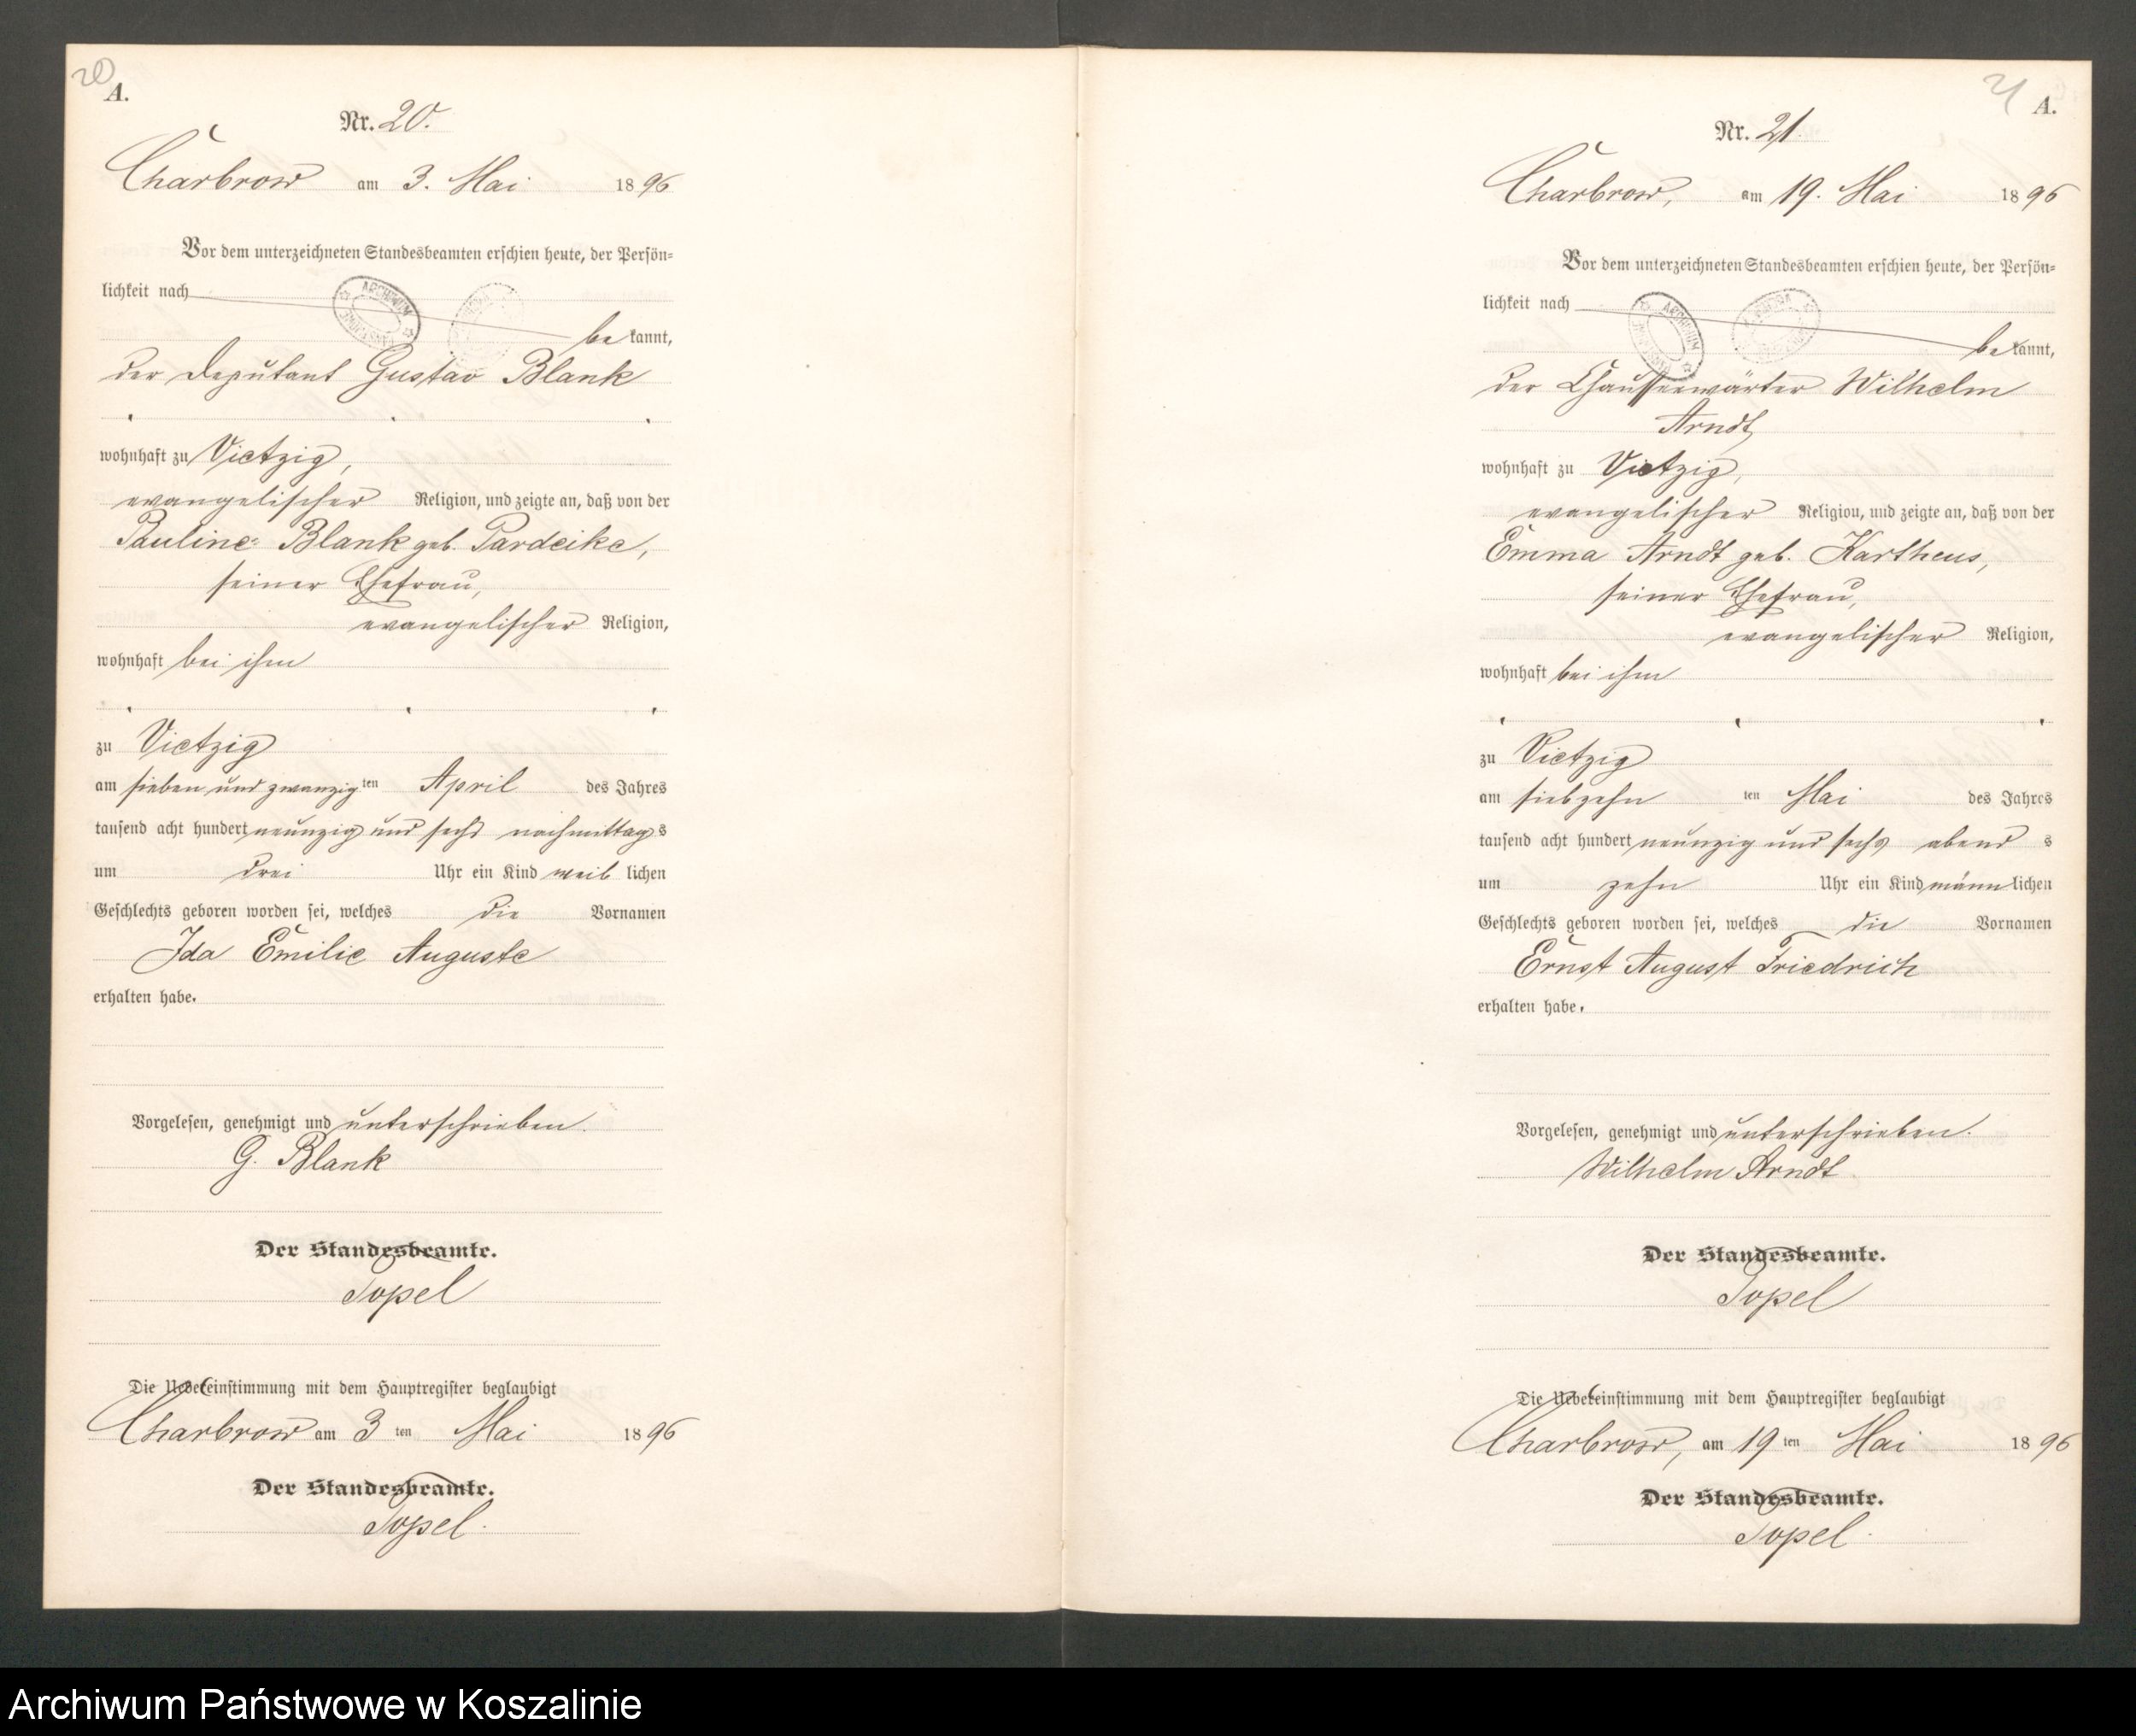 20
A.
Nr. 20.
Charbrow am 3. Mai 1896
Vor dem unterzeichneten Standesbeamten erschien heute, der Persön-
lichkeit nach
ARCHIWUM
bekannt,
der Deputant Gustav Blank
wohnhaft zu Vietzig,
evangelischer Religion, und zeigte an, daß von der
Pauline Blank geb. Pardeike,
seiner Ehefrau,
evangelischer Religion,
wohnhaft bei ihm
zu Vietzig
am sieben und zwanzigten April des Jahres
tausend acht hundert neunzig und sechs nachmittags
um drei Uhr ein Kind weiblichen
Geschlechts geboren worden sei, welches die Vornamen
Ida Emilie Auguste
erhalten habe.
Vorgelesen, genehmigt und unterschrieben.
G. Blank
Der Standesbeamte.
Topel
Die Uebereinstimmung mit dem Hauptregister beglaubigt
Charbrow am 3ten Mai 1896
Der Standesbeamte.
Topel.
21
A.
Nr. 21.
Charbrow, am 19. Mai 1896
Vor dem unterzeichneten Standesbeamten erschien heute, der Persön-
lichkeit nach
ARCHIWUM
bekannt,
der Chausseewärter Wilhelm
Arndt,
wohnhaft zu Vietzig,
evangelischer Religion, und zeigte an, daß von der
Emma Arndt geb. Kartheus,
seiner Ehefrau,
evangelischer Religion,
wohnhaft bei ihm
zu Vietzig
am siebzehnten Mai des Jahres
tausend acht hundert neunzig und sechs abends
um zehn Uhr ein Kind männlichen
Geschlechts geboren worden sei, welches die Vornamen
Ernst August Friedrich
erhalten habe.
Vorgelesen, genehmigt und unterschrieben.
Wilhelm Arndt
Der Standesbeamte.
Topel
Die Uebereinstimmung mit dem Hauptregister beglaubigt
Charbrow, am 19ten Mai 1896
Der Standesbeamte.
Topel.
Archiwum Państwowe w Koszalinie